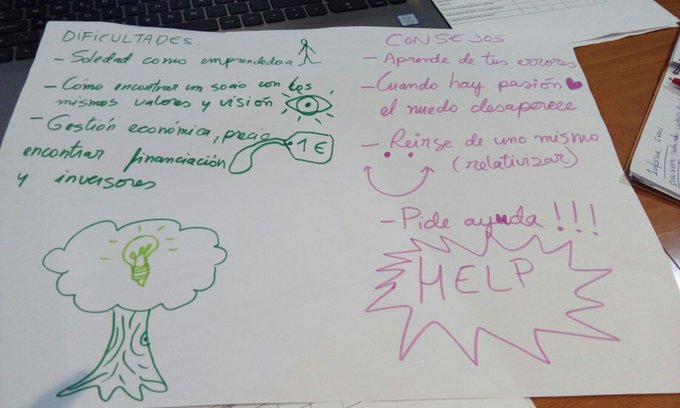 DIFICULTADES:
- Soledad como emprendedora
- Cómo encontrar un socio con los
mismos valores y visión
- Gestión económica, precio
encontrar financiación
y inversores
1€
CONSEJOS
- Aprende de tus errores
- Cuando hay pasión
el miedo desaparece
- Reirse de uno mismo
(relativizar)
- Pide ayuda !!!
HELP